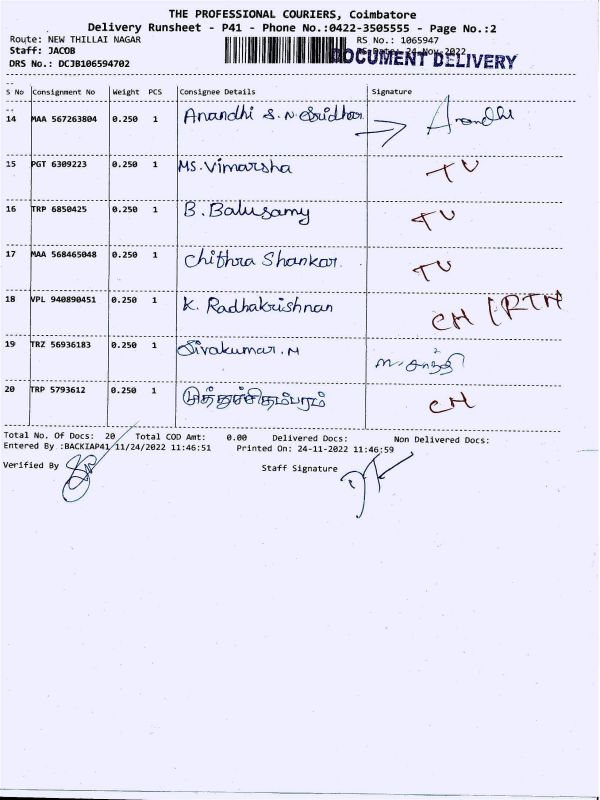 THE PROFESSIONAL COURIERS, Coimbatore
Delivery Runsheet - P41 - Phone No.:0422-3505555 - Page No.:2
Route: NEW THILLAI NAGAR RS No.: 1065947
Staff: JACOB RS Date: 24-Nov-2022
DOCUMENT DELIVERY
DRS No.: DCJB106594702
S No Consignment No Weight PCS Consignee Details Signature
14 MAA 567263804 0.250 1 Anandhi S. N Sridhar Anandhi
15 PGT 6309223 0.250 1 MS. Vimarsha TU
16 TRP 6850425 0.250 1 B. Balusamy TU
17 MAA 568465048 0.250 1 Chithra Shankar. TU
18 VPL 940890451 0.250 1 K. Radhakrishnan CH / RTN
19 TRZ 56936183 0.250 1 Sivakumar. M
20 TRP 5793612 0.250 1 முத்துச்சிதம்பரம் CH
Total No. Of Docs: 20 Total COD Amt: 0.00 Delivered Docs: Non Delivered Docs:
Entered By :BACKIAP41/11/24/2022 11:46:51 Printed On: 24-11-2022 11:46:59
Verified By Staff Signature